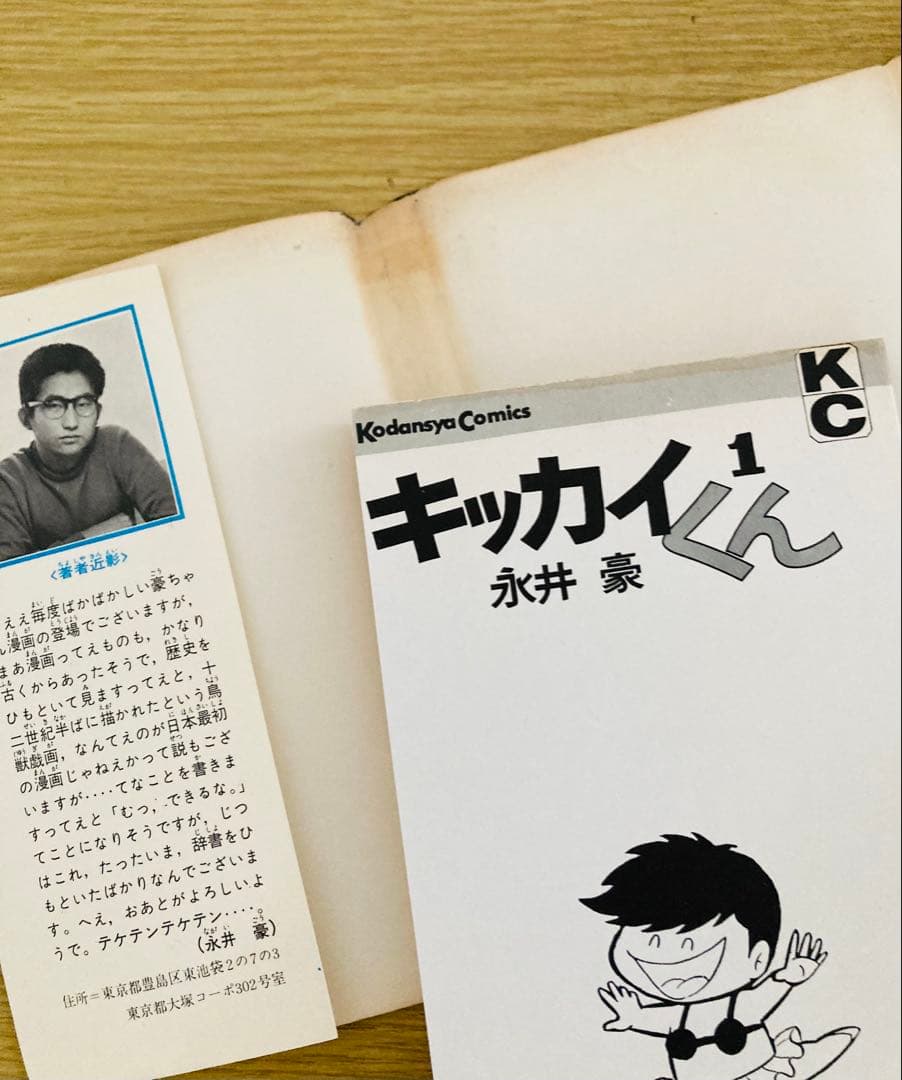 〈著者近影〉
ええ毎度ばかばかしい豪ちゃ
ん漫画の登場でございますが,
まあ漫画ってえものも, かなり
古くからあったそうで, 歴史を
ひもといて見ますってえと, 十
二世紀半ばに描かれたという鳥
獣戯画, なんてえのが日本最初
の漫画じゃねえかって説もござ
いますが‥‥てなことを書きま
すってえと「むっ, できるな。」
てことになりそうですが, じつ
はこれ, たったいま, 辞書をひ
もといたばかりなんでございま
す。へえ, おあとがよろしいよ
うで。テケテンテケテン‥‥。
(永井 豪)
住所=東京都豊島区東池袋2の7の3
東京都大塚コーポ302号室
Kodansya Comics
KC
キッカイくん 1
永井 豪